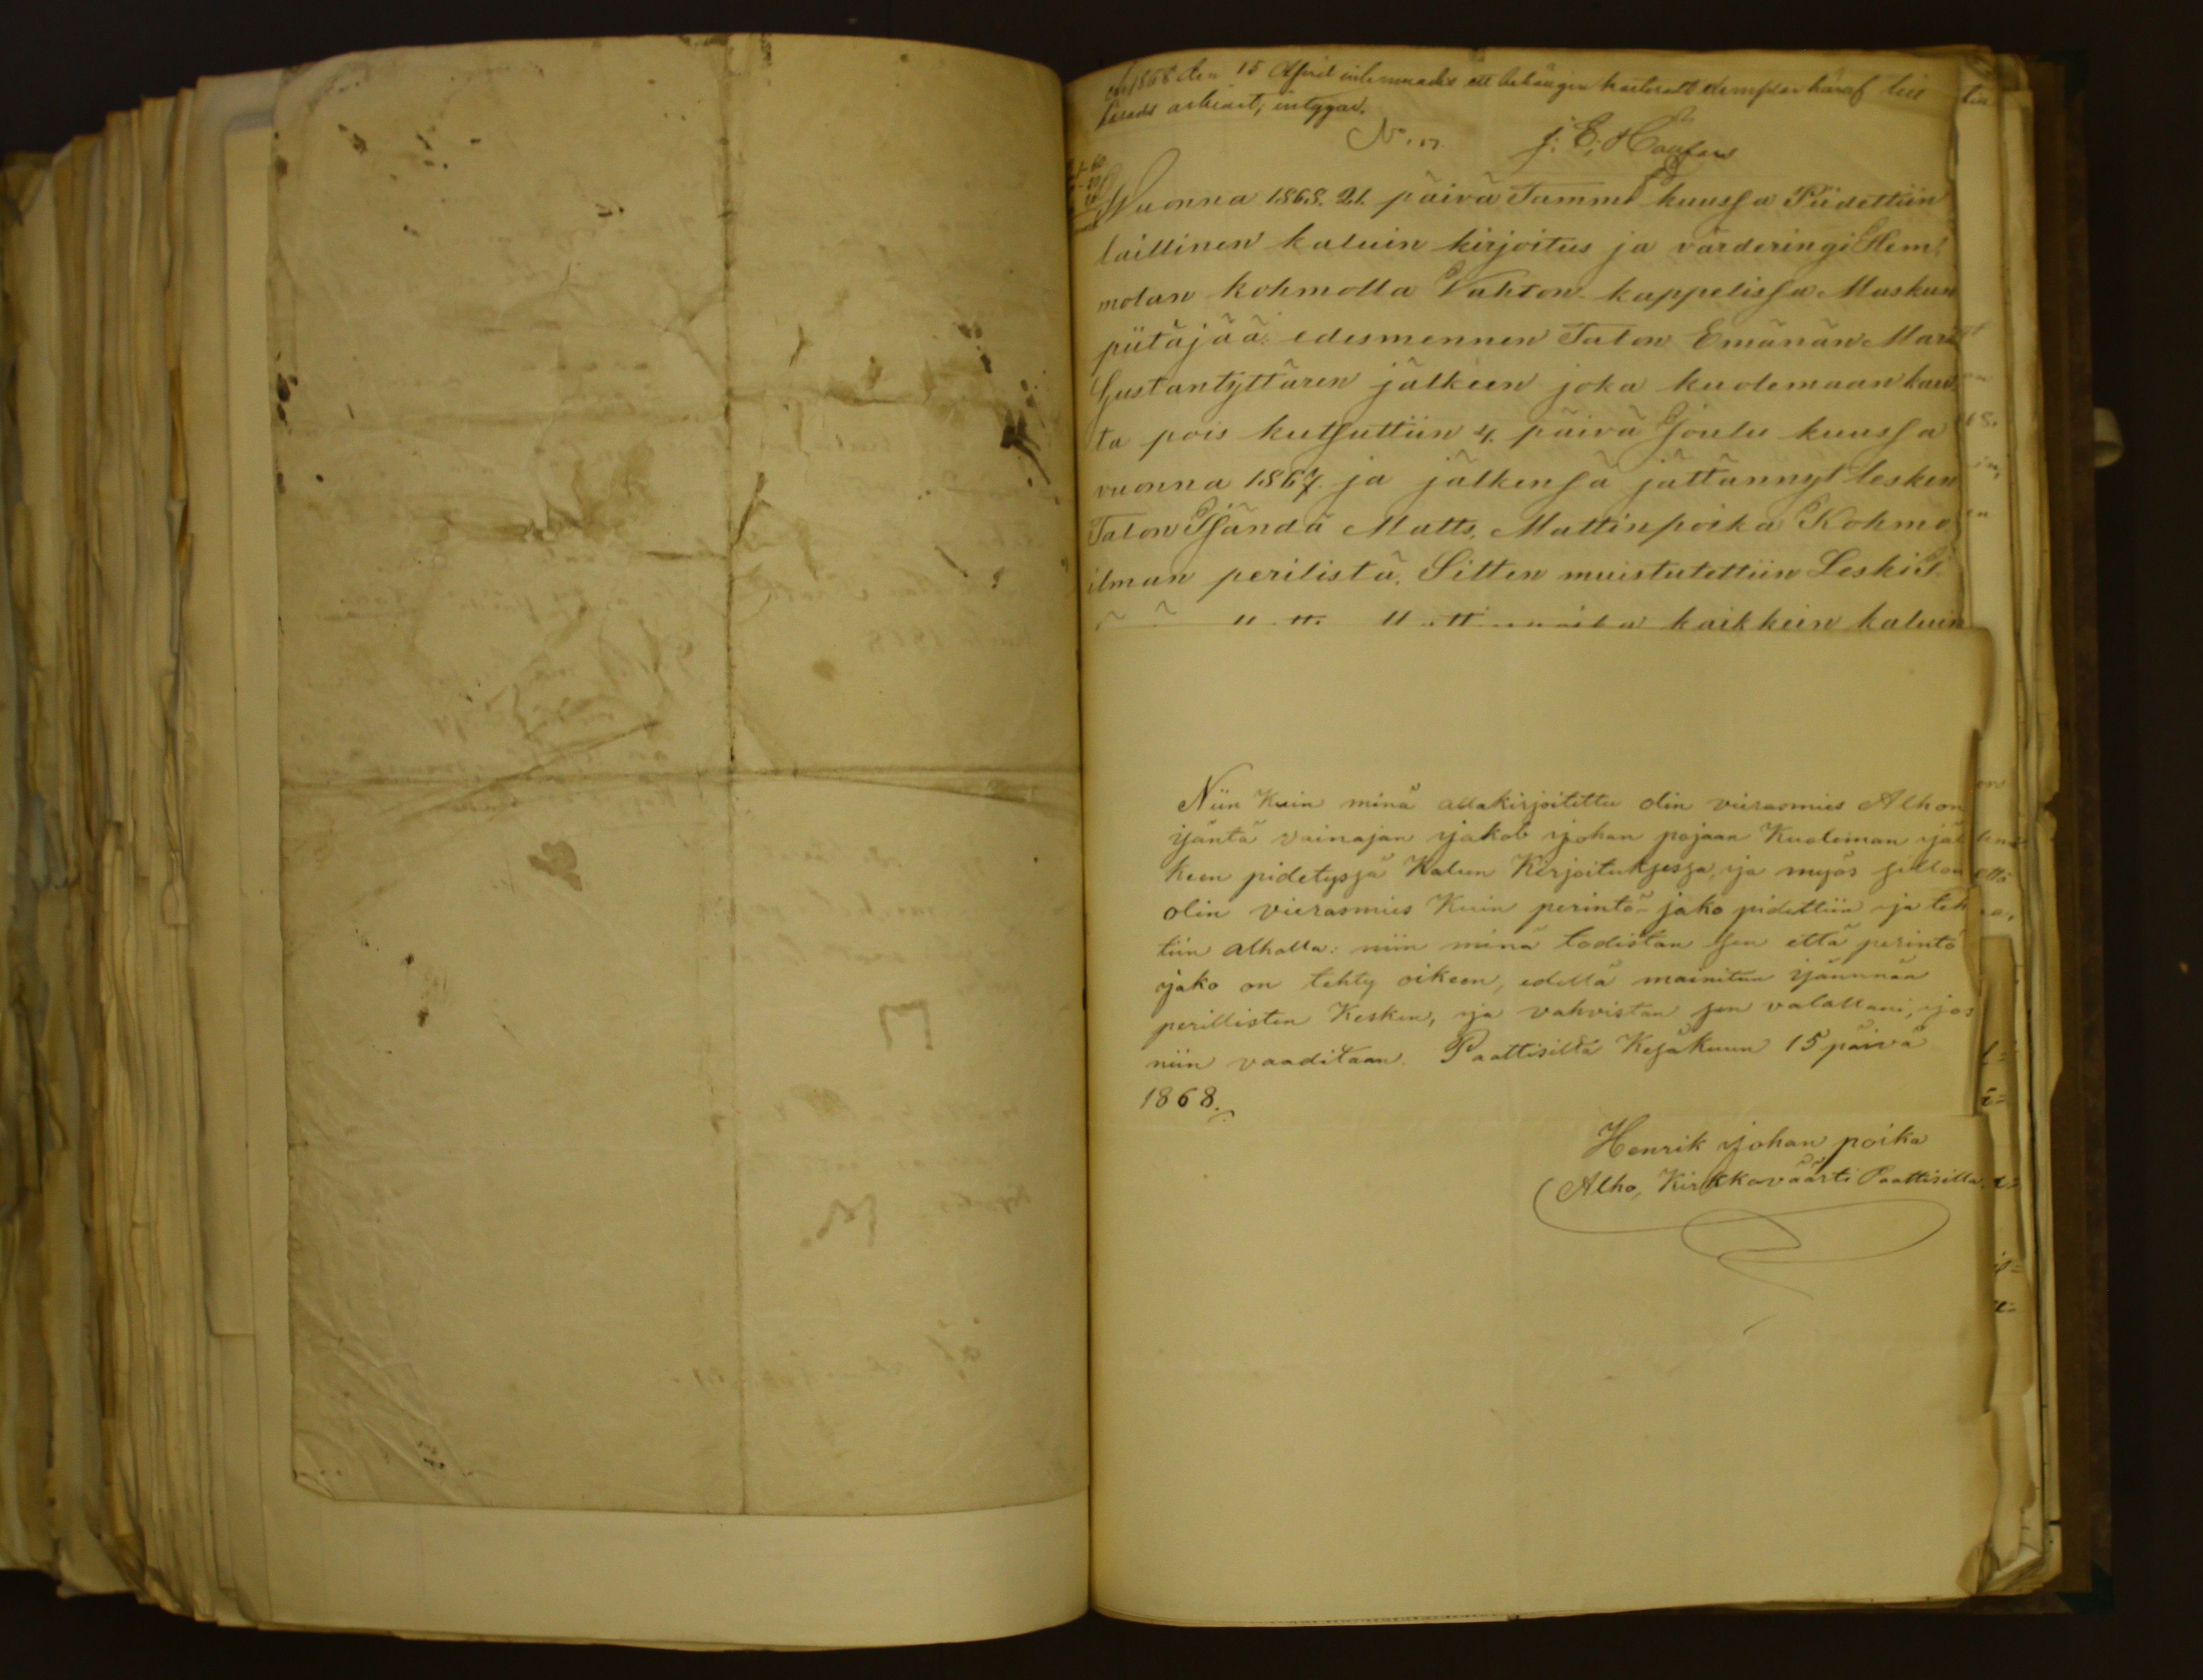 1868 den 15 April inlemnades ett behängen karterat exemplar häraf till
härads arkivet, intygar.
No 17. J. E. Haufars
Wuonna 1868. 21. päivä Tammi kuussa Piidettiin
laillinen kaluin kirjoitus ja värderingi Hem¦
molan kohmolla Vahton kappelissa Maskun
piitäjää. edesmennen Talon Emänän Mari
Gustantyttären jälkeen joka kuolemaan kau
ta pois kutsuttiin 4. päivä Joulu kuussa
vuonna 1867. ja jälkensä jättännyt lesken
Talon Isändä Matts, Mattinpoika Kohmo
ilman perilistä. Sitten muistutettiin Leski I.
kaikkein kaluin
Niin Kuin minä allakirjoitettu olin vierasmies Alhon
ijäntä vainajan ijakob ijohan pojaan Kuoleman ijäl
keen pidetysjä Kalun Kirjoituksessa, ija myös sillon
olin vierasmies Kuin perintö-jako pidettiin ija teh
tiin alholla: niin minä todistan sen että perintö
ijako on tehty oikeen, edellä mainitun ijännnän
perillisten Kesken, ija vahvistan sen valallani, ijos
niin vaaditaan. Paattisilta Kesäkuun 15 päivä
1868.
Henrik ijohan poika
Alho, Kirkkoväärti Paattisilla.